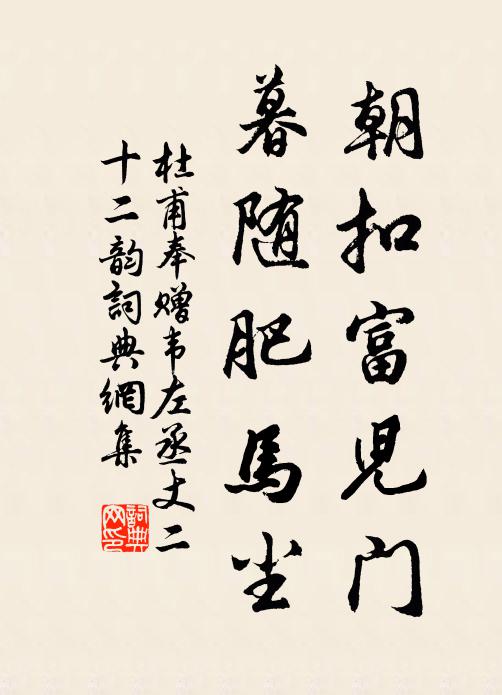 朝扣富児门
暮随肥馬尘
杜甫奉赠韦左丞丈二
十二韵詞典網集
詞典网印